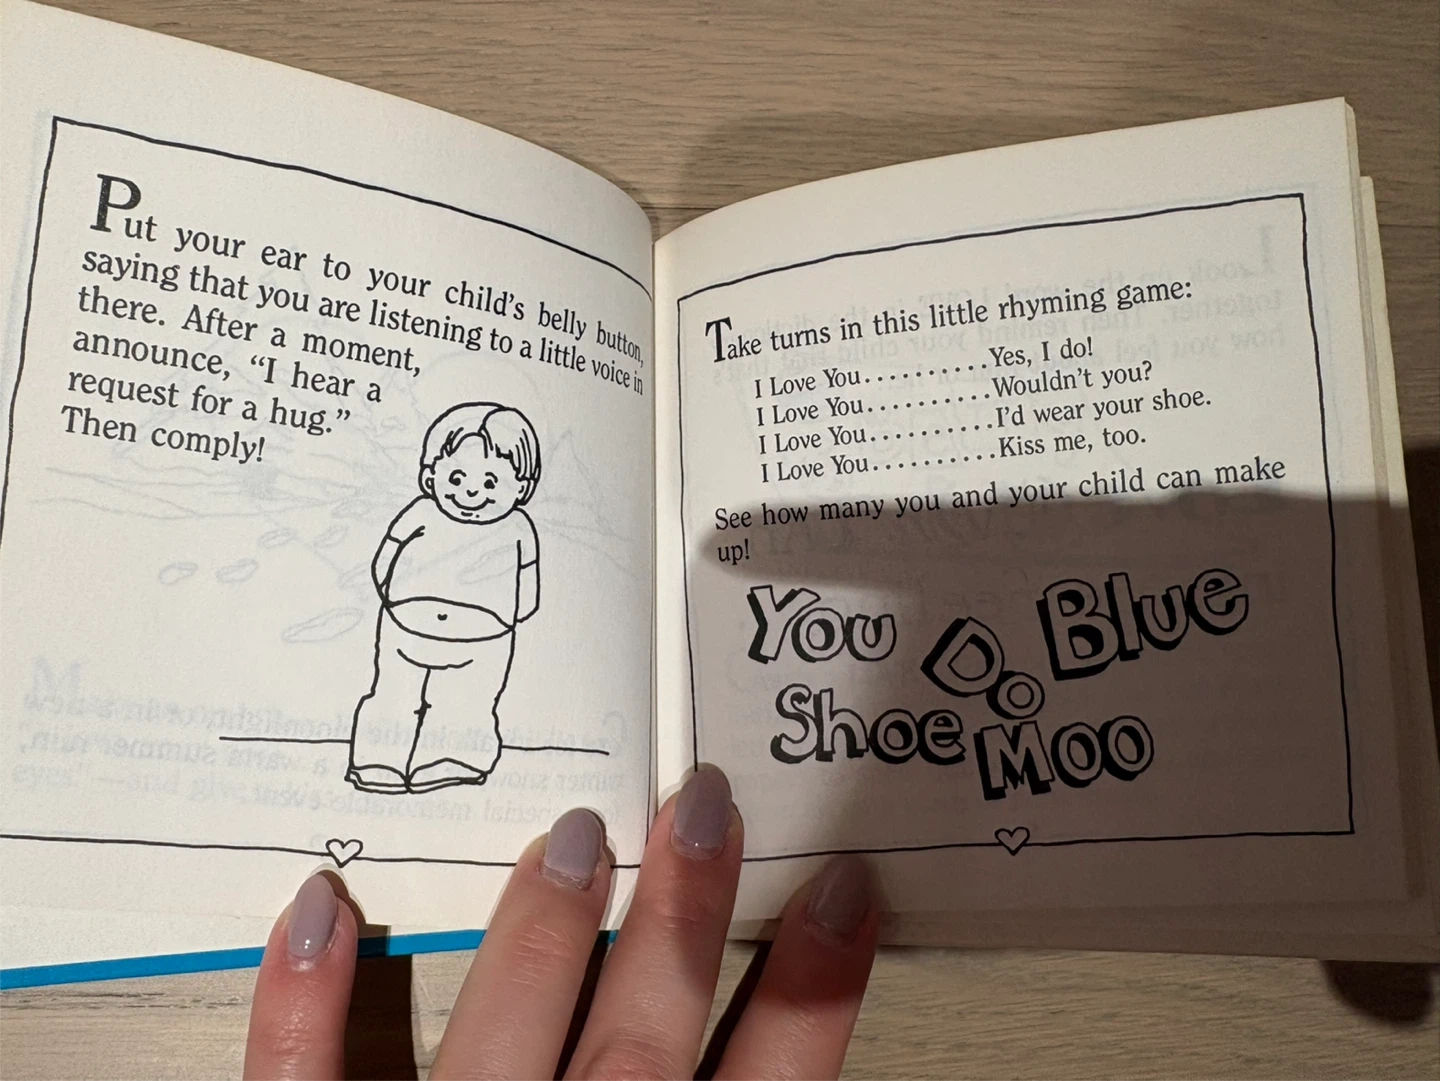 Put your ear to your child's belly button,
saying that you are listening to a little voice in
there. After a moment,
announce, “I hear a
request for a hug.”
Then comply!
Take turns in this little rhyming game:
I Love You..........Yes, I do!
I Love You..........Wouldn't you?
I Love You..........I'd wear your shoe.
I Love You..........Kiss me, too.
See how many you and your child can make
up!
You Do Blue
Shoe Moo